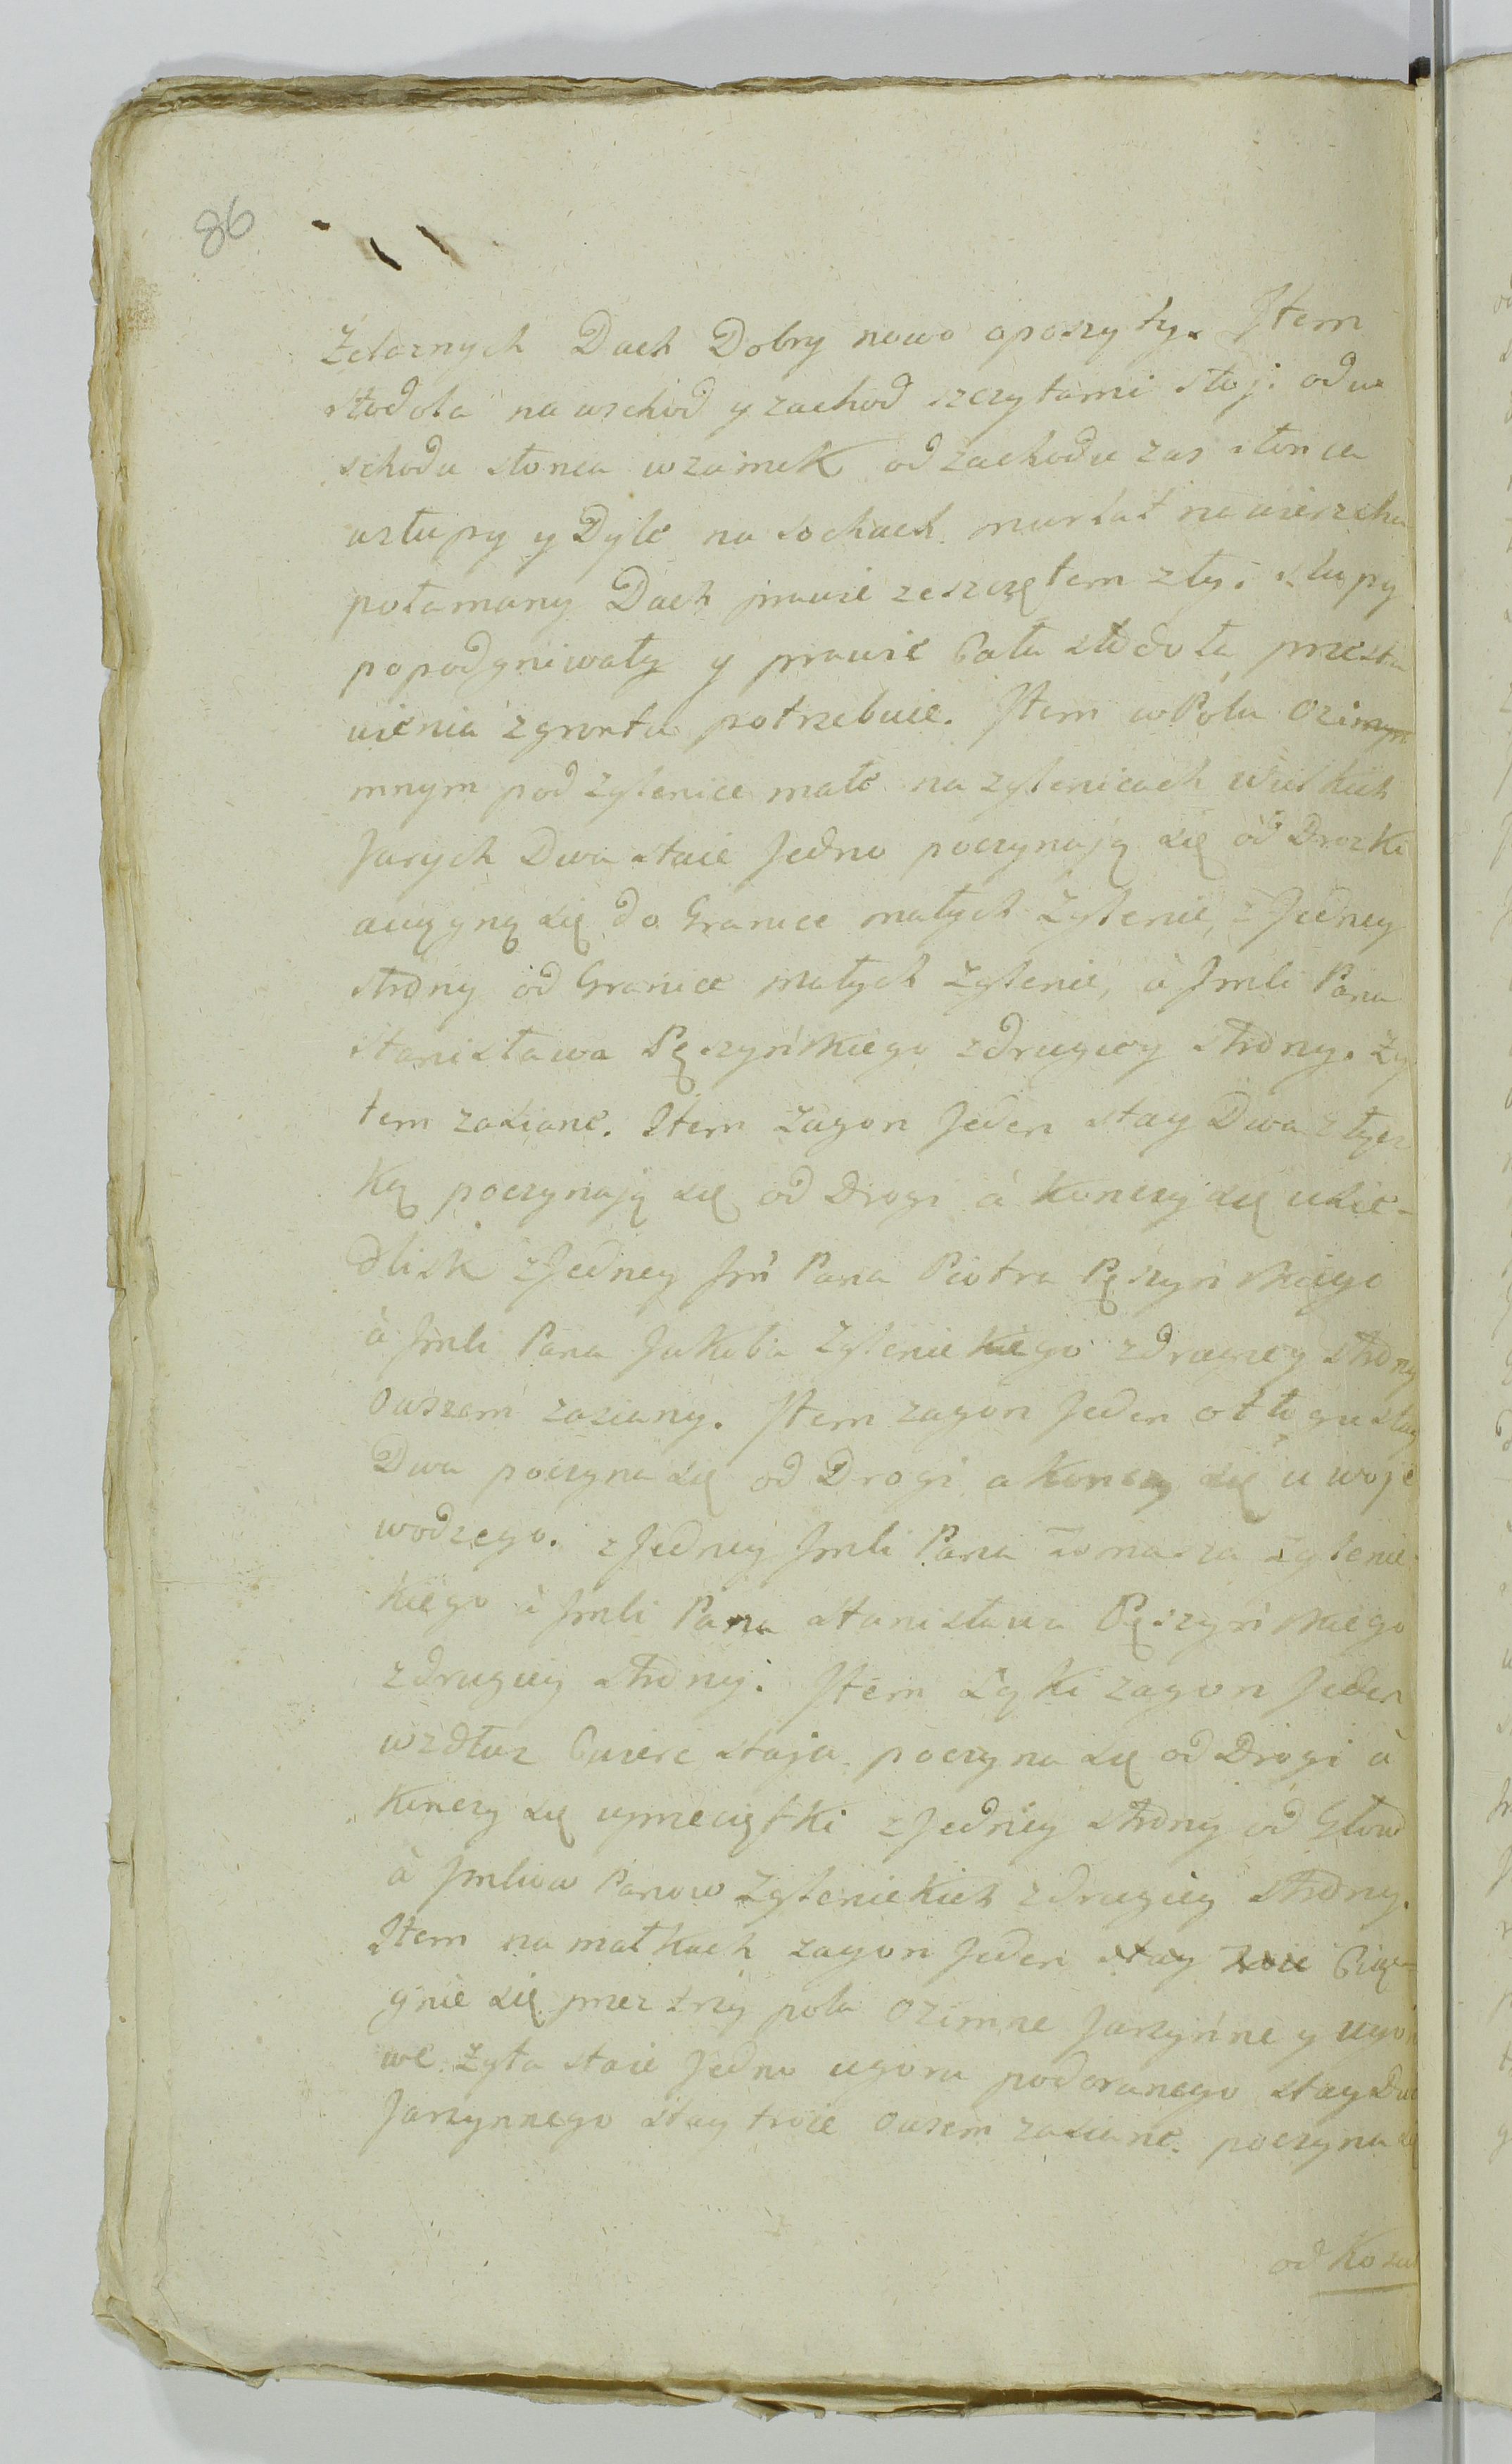 86
Zelaznych Dach Dobry nowo oposzyty. Item
stodola na wschod y zachod szczytami stoj. od w
schodu słonca w zamek od zachodu zas słonca
w słupy y Dyle na sochach murłat na wierzchu
połamany Dach prawie zeszczętem zły. słupy
popodgniwały y prawie Cała stodoła przesta
wienia z gruntu potrzebuie. Item w Polu Ozimym
mnym pod zylenice małe na zylenicach wielkich
Jarych Dwa staie Jedno poczynaią się od Drozki
 się do Granice małych zylenic, z Jedney
strony od Granice małych zylenic, à Jmci Pana
Stanisława Pęszyńskiego z drugiey strony. Zy
tem zasiane. Item Zagon Jeden stay Dwa z łącz
Ką poczynają się od Drogi à Konczy się u sie-
dlisk z Jedney Jm Pana Piotra Pęszyńskiego
à Jmci Pana Jakuba Zylenickiego z drugiey strony
Owszem zasiany. Item zagon Jeden odłogu stay
Dwa poczyna się od Drogi a Konczy się u woje
wodzego. z Jedney Jmci Pana Tomasza Zylenic
kiego à Jmci Pana Stanisława Pęszyńskiego
z drugiey strony. Item Łąki zagon Jeden
wzdłuz Cwierc staja. poczyna się od Drogi à
Konczy się z Jedney strony od Głow
à Jmciow Panow Zylenickich z drugiey strony.
Item na małkach zagon Jeden stay Cią-
gnie się przez trzy pola Ozimne Jarzynne y ugo
we. zyta staie Jedno ugoru podoranego stay Dwa
Jarzynnego stay troie Owsem zasiane. poczyna się
od